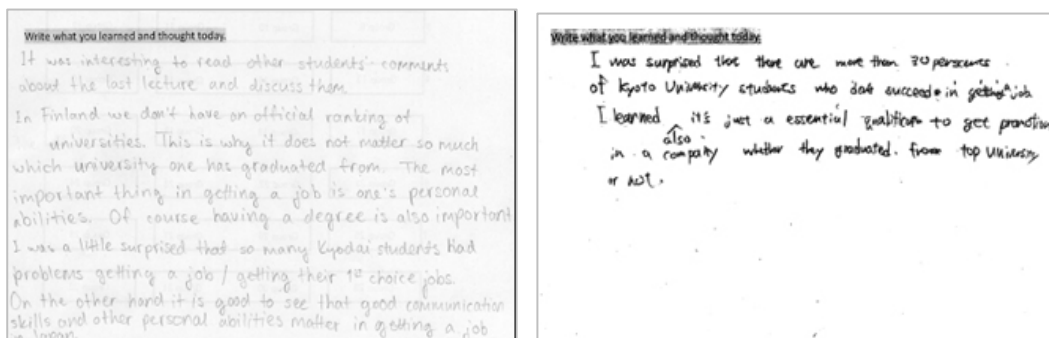 Write what you learned and thought today.
It was interesting to read other students' comments
about the last lecture and discuss them.
In Finland we don't have an official ranking of
universities. This is why it does not matter so much
which university one has graduated from. The most
important thing in getting a job is one's personal
abilities. Of course having a degree is also important
I was a little surprised that so many Kyodai students had
problems getting a job / getting their 1st choice jobs.
On the other hand it is good to see that good communication
skills and other personal abilities matter in getting a job
in Japan.
Write what you learned and thought today.
I was surprised that there are more than 30
of Kyoto University students who succeed in getting a job
I learned also it's just a essential to get promotion
in a company whether they graduated from top University
or not.